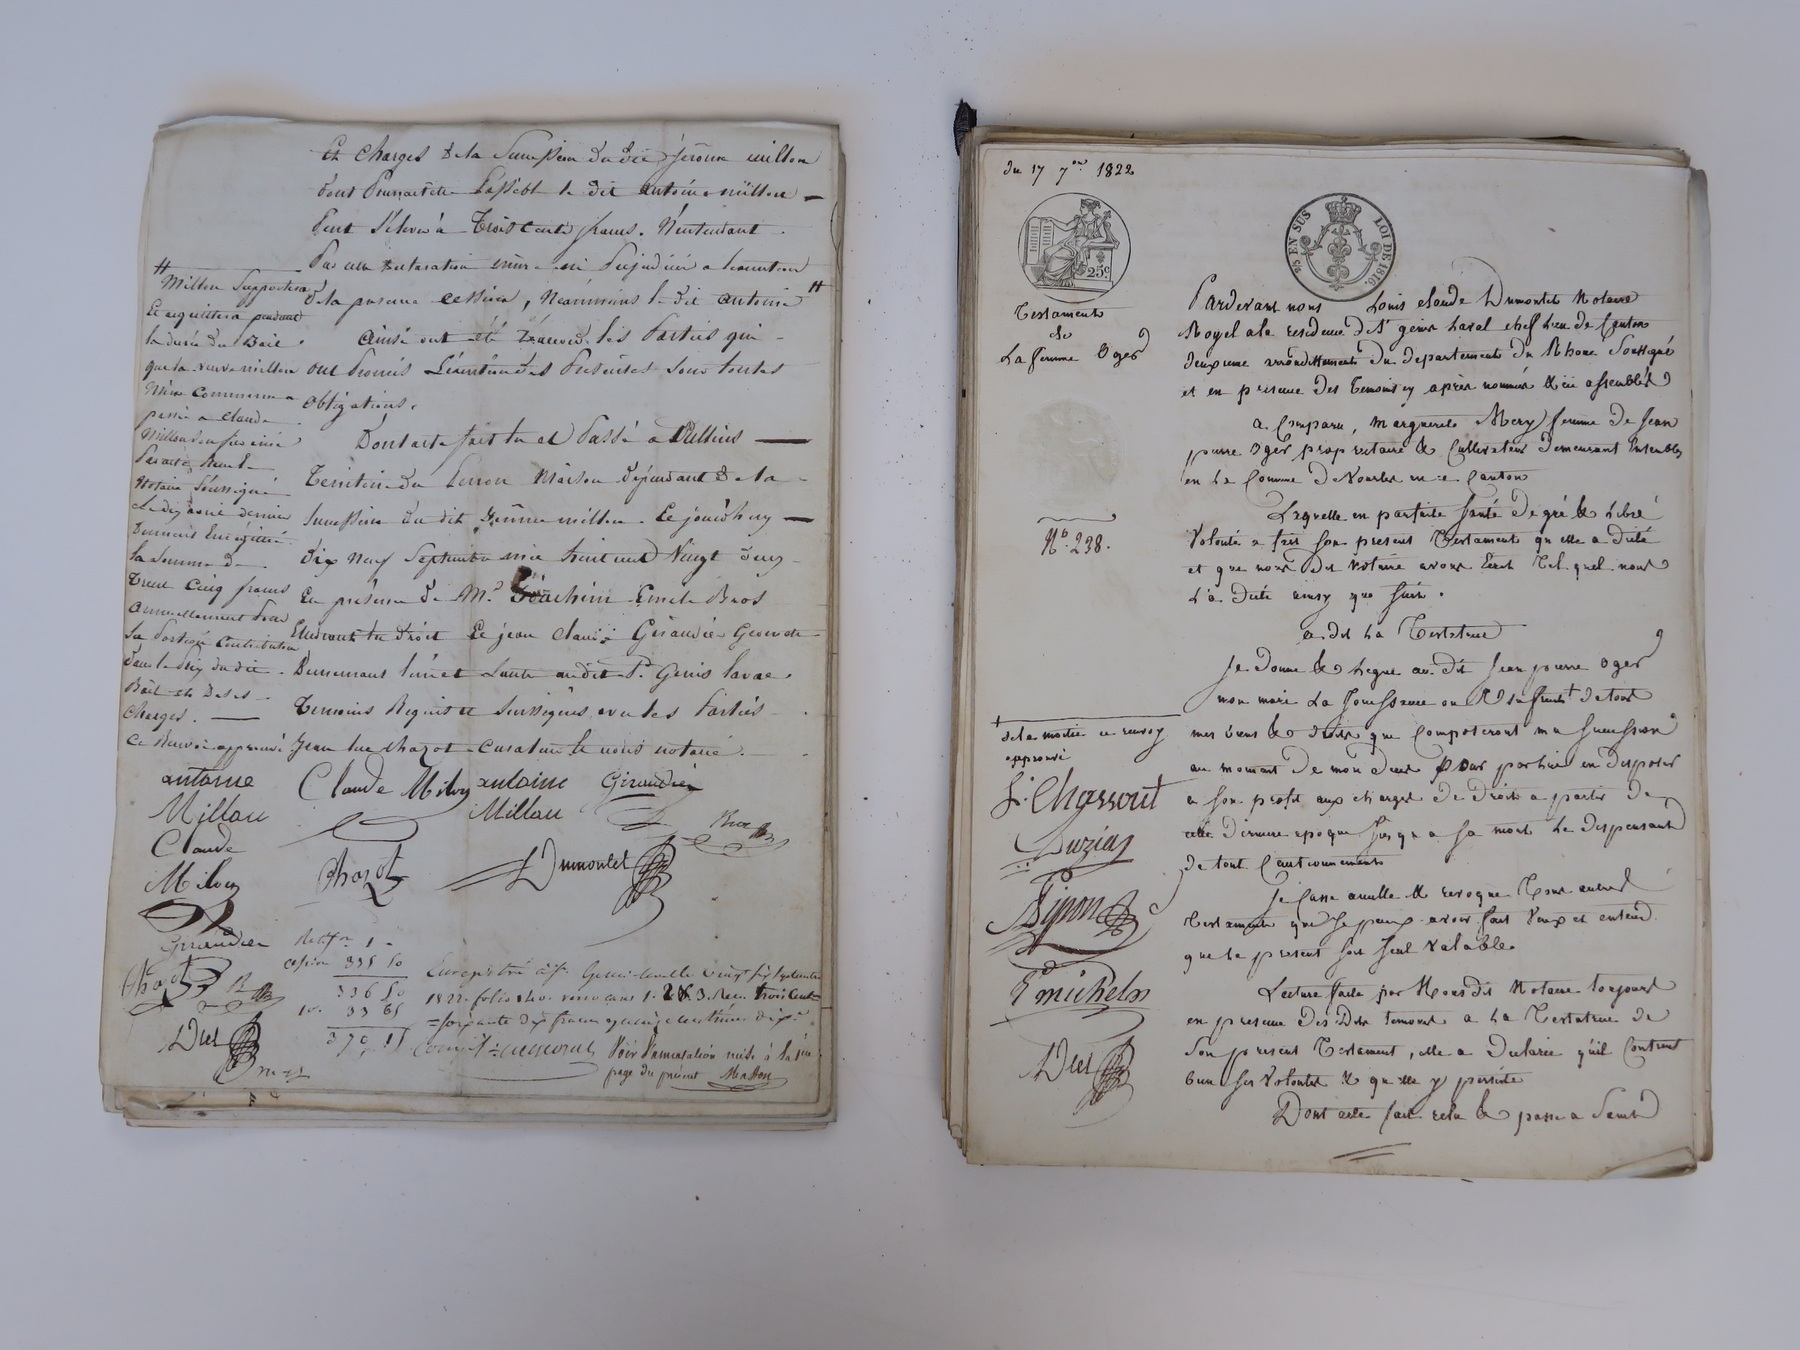 Et Charges de la Succession du dit Jérôme millon
dont Pourroit etre Passible le dit antoine millon
Peut s'élever à Trois Cents francs. N'entendant
Par cette evaluation nuire ni Préjudicier a l'execution
de la présente cession, Néanmoins le dit antoine #
Ainsi ont été les Parties qui
ont Promis L'éxécution des Présentes sous toutes
Obligations.
Dont acte fait lu et Passé a Vullins
Territoire du Perron Maison dépendant de la
Succession du dit Jérôme millon. Le jourd'huy
Dix neuf Septembre mil huit cent Vingt deux
En présence de Mrs Joachim Emile Bros
Etudiant en droit Et jean claude Giraudier Geometre
Demeurant l'un et L'autre audit St. Genis laval
Temoins Requis et Soussignés avec les Parties
Jean luc chazot Curateur & nous notaire.
#
Millon Supportera
Et acquittera pendant
la durée du Bail
que la veuve millon
Mère Commune a
passé a Claude
Millon son fils ainé
Par acte Reçu le
Notaire Soussigné
Le dix avril dernier
la Somme de
Trente Cinq francs
annuellement Pour
Sa Portion Contributive
dans le Prix du dit
Bail et de ses
Charges.
Ce Renvoi approuvé
antoine Claude Milon antoine Giraudier
Millon Millon
Claude Bros
Milon Chazot Dumontet
Giraudier
Chazot B
Dtet
Ratifon 1 -
cession 335 50
336 50
10e 33 65
370 15
Enregistré à St. Genis laval le vingt six septembre
1822 folio 140 verso cases 1. 2 & 3. Reçu trois cent
soixante dix francs quinze centimes dixe
Voir l'annotation mise à la 1ère
page du présent Masson
du 17 7bre 1822
25c
25 EN SUS LOI DE 1816
Testament
de
La femme Oger
No. 238.
Pardevant nous Louis claude Dumontet Notaire
Royal a la residence de St. genis Laval chef Lieu de Canton
deuxieme arrondissement du departement du Rhone Soussigné
et en presence des temoins cy après nommés & ici assemblés
a Comparu, Marguerite Mery femme de Jean
pierre Oger proprietaire & Cultivateur demeurant Ensemble
en La Comune De Vourles en ce Canton
Laquelle en parfaite Santé De gré & Libre
Volonté a fait son present Testament qu'elle a Dicté
et que nous Dit Notaire avons Ecrit Tel quel nous
L'a Dicté ainsy que suit.
a dit La Testatrice
Je Donne & Legue au dit Jean pierre Oger
mon mari La Jouissance ou L'Usufruit + de tous
mes biens & droits qui Composeront ma succession
au moment De mon deces pour par lui en Disposer
a son profit aux charges De Droit a partir De
cette Derniere epoque Jusqu'a sa mort Le Dispensant
de tout Cautionnement
Je Casse annulle & revoque Tous autres
Testaments que Je peux avoir fait Veux et entend
que le present soit seul Valable.
Lecture faite par Nous dit Notaire toujours
en presence des Dits temoins a La Testatrice de
son present Testament, elle a Declarée qu'il Contient
bien ses Volontés & qu'elle y persiste
Dont acte fait relu & passé a Saint
+
de la moitié ce renvoy
approuvé
F. Chassout
Duzias
Pitiot
michel
Dtet